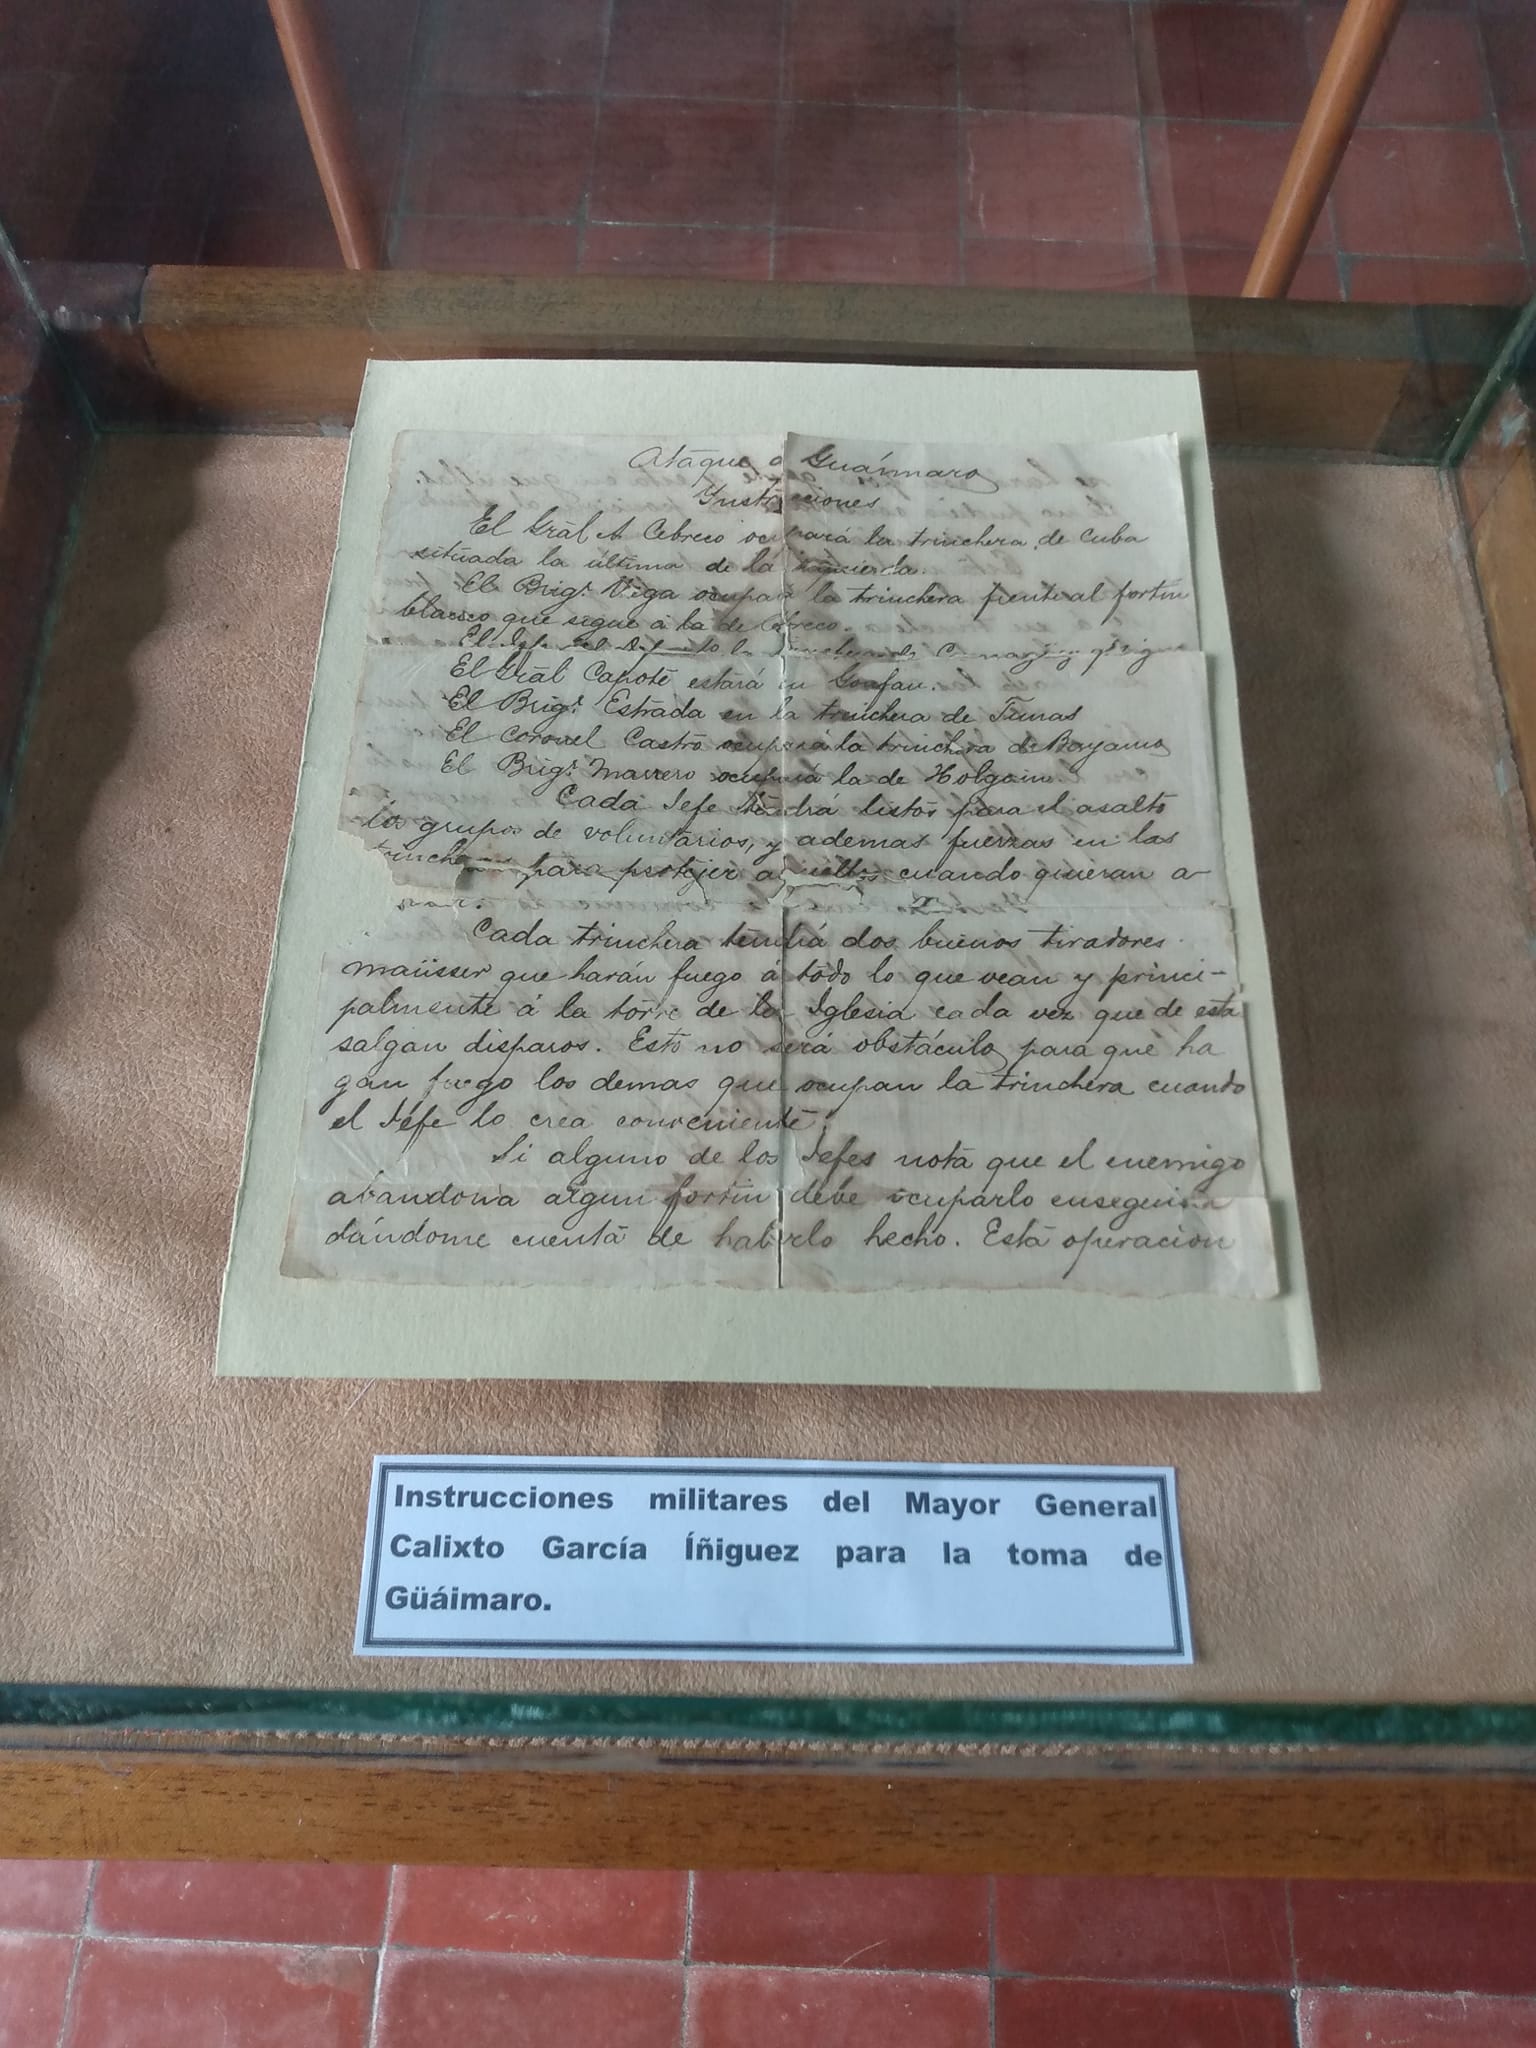 Ataque a Guáimaro
Ynstrucciones
El Gräl A Cebreco ocupará la trinchera de Cuba
situada la última de la izquierda.
El Brigr. Vega ocupará la trinchera frente al fortin
blanco que sigue á la de Cebreco.
El Jefe del la
El Gräl Capote estará en
El Brigr. Estrada en la trinchera de Tunas
El Coronel Castro ocupará la trinchera de Bayamo
El Brigr. Marrero ocupará la de Holguin.
Cada Jefe tendrá listos para el asalto
los grupos de voluntarios, y ademas fuerzas en las
trincheras para protejer aquellos cuando quieran a-
Cada trinchera tendrá dos buenos tiradores
maüsser que harán fuego á todo lo que vean y princi-
palmente á la torre de la Iglesia cada vez que de esta
salgan disparos. Esto no será obstáculo para que ha
gan fuego los demas que ocupan la trinchera cuando
el Jefe lo crea conveniente.
Si alguno de los Jefes nota que el enemigo
abandona algun fortin debe ocuparlo enseguida
dándome cuenta de haberlo hecho. Esta operacion
Instrucciones militares del Mayor General
Calixto García Íñiguez para la toma de
Güáimaro.